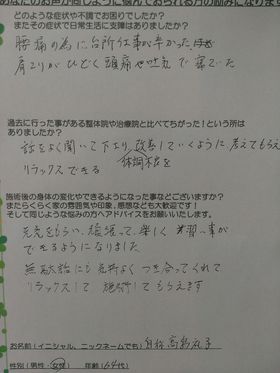 あなたのお声が同じように悩んでおられる方の励みになります
どのような症状や不調でお困りでしたか？
またその症状で日常生活に支障はありましたか？
腰痛の為に台所仕事が辛かった
肩こりがひどく頭痛や吐気で寝ていた
過去に行った事がある整体院や治療院と比べてちがった！という所は
ありましたか？
話をよく聞いて下さり 改善していくように考えてもらえ
体調不良を
リラックスできる
施術後の身体の変化やできるようになった事などございますか？
またらくらく家の雰囲気や印象、感想なども大歓迎です！
そして同じような悩みの方へアドバイスをお願いいたします。
元気をもらい、頑張って、楽しく
事が
できるようになりました
無駄話にも気持よくつき合ってくれて
リラックスして 施術してもらえます
お名前（イニシャル、ニックネームでも）
性別（男性・女性） 年齢（64代）